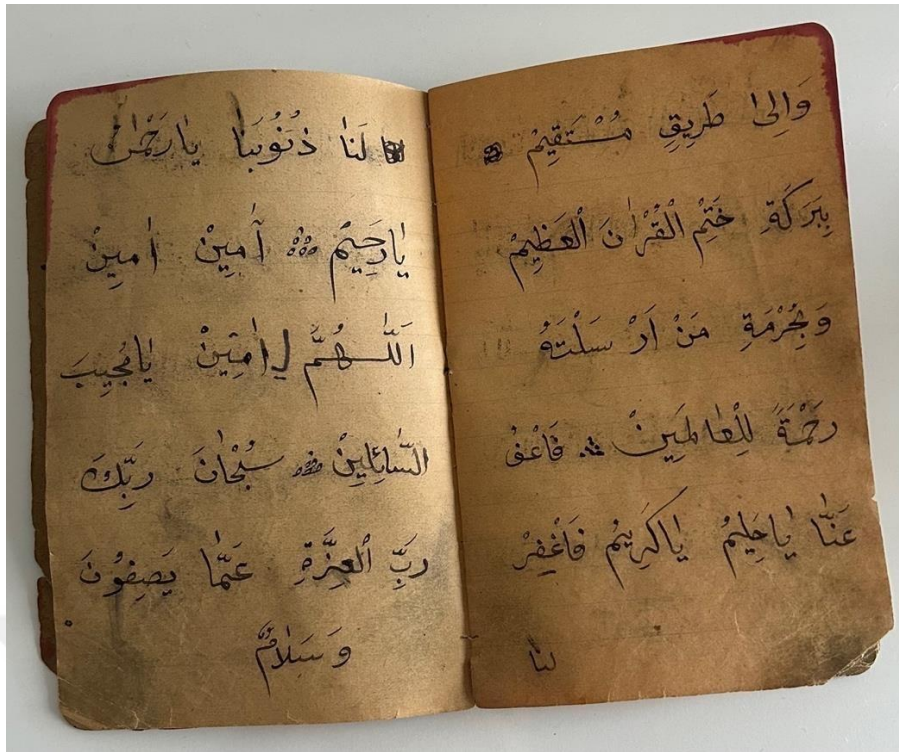 وَاِلىٰ طَرِيقٍ مُسْتَقِيمْ
بِبَرَكَةِ خَتْمِ الْقُرْاٰنَ الْعَظِيمْ
وَبِحُرْمَةِ مَنْ اَرْسَلْتَهُ
رَحْمَةً لِلْعٰالَمِينْ فَاعْفُ
عَنّٰا يٰاحَلِيمُ يٰاكَرِيمُ فَاغْفِرْ
لنا
لَنٰا ذُنُوبَنٰا يٰارَحْمٰنُ
يٰارَحِيمُ اٰمِينْ اٰمِينْ
اَللّٰهُمَّ اٰمِينْ يٰامُجِيبَ
السّٰائِلِينْ سُبْحٰانَ رَبِّكَ
رَبِّ الْعِزَّةِ عَمّٰا يَصِفُونَ
وَسَلٰامٌ